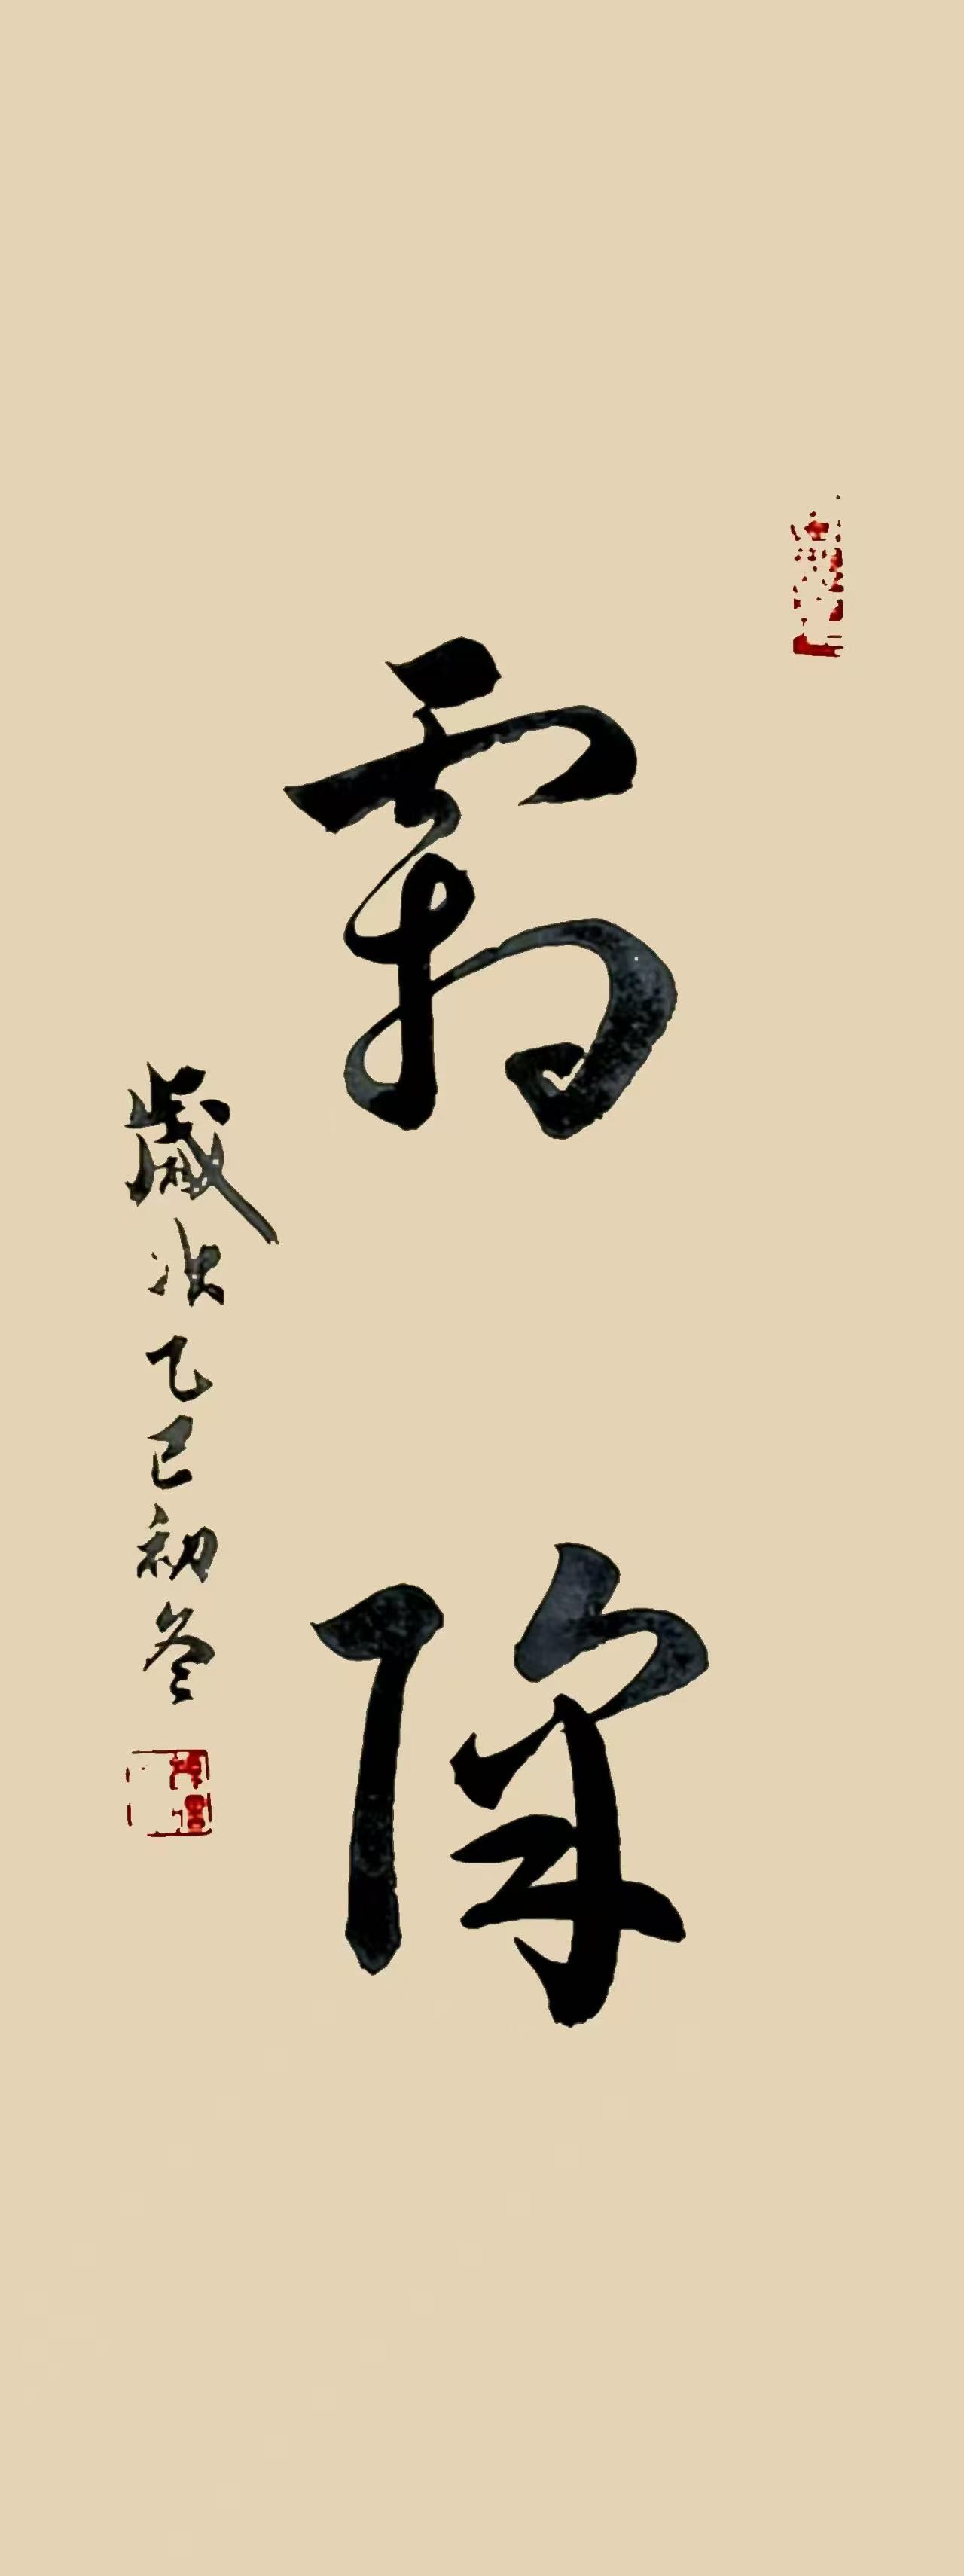 霜降
歲次乙巳初冬